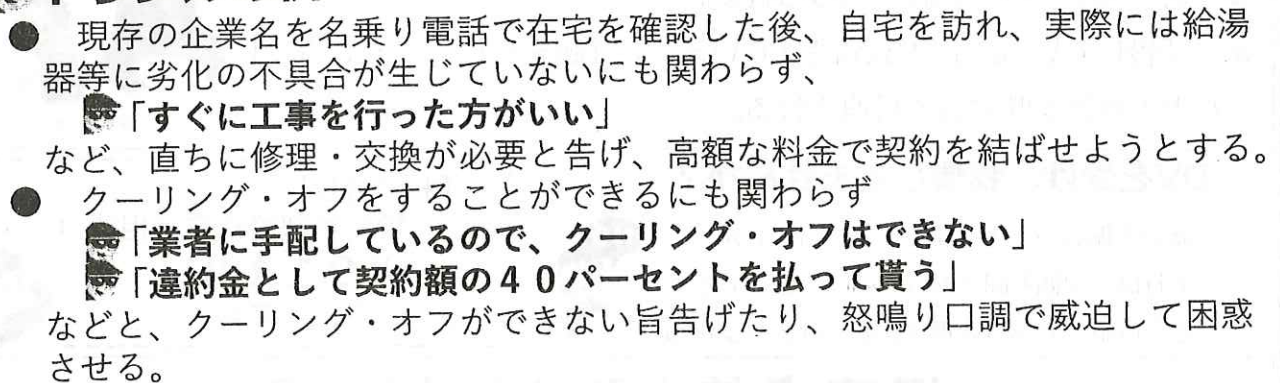 ● 現存の企業名を名乗り電話で在宅を確認した後、自宅を訪れ、実際には給湯
器等に劣化の不具合が生じていないにも関わらず、
「すぐに工事を行った方がいい」
など、直ちに修理・交換が必要と告げ、高額な料金で契約を結ばせようとする。
● クーリング・オフをすることができるにも関わらず
「業者に手配しているので、クーリング・オフはできない」
「違約金として契約額の40パーセントを払って貰う」
などと、クーリング・オフができない旨告げたり、怒鳴り口調で威迫して困惑
させる。